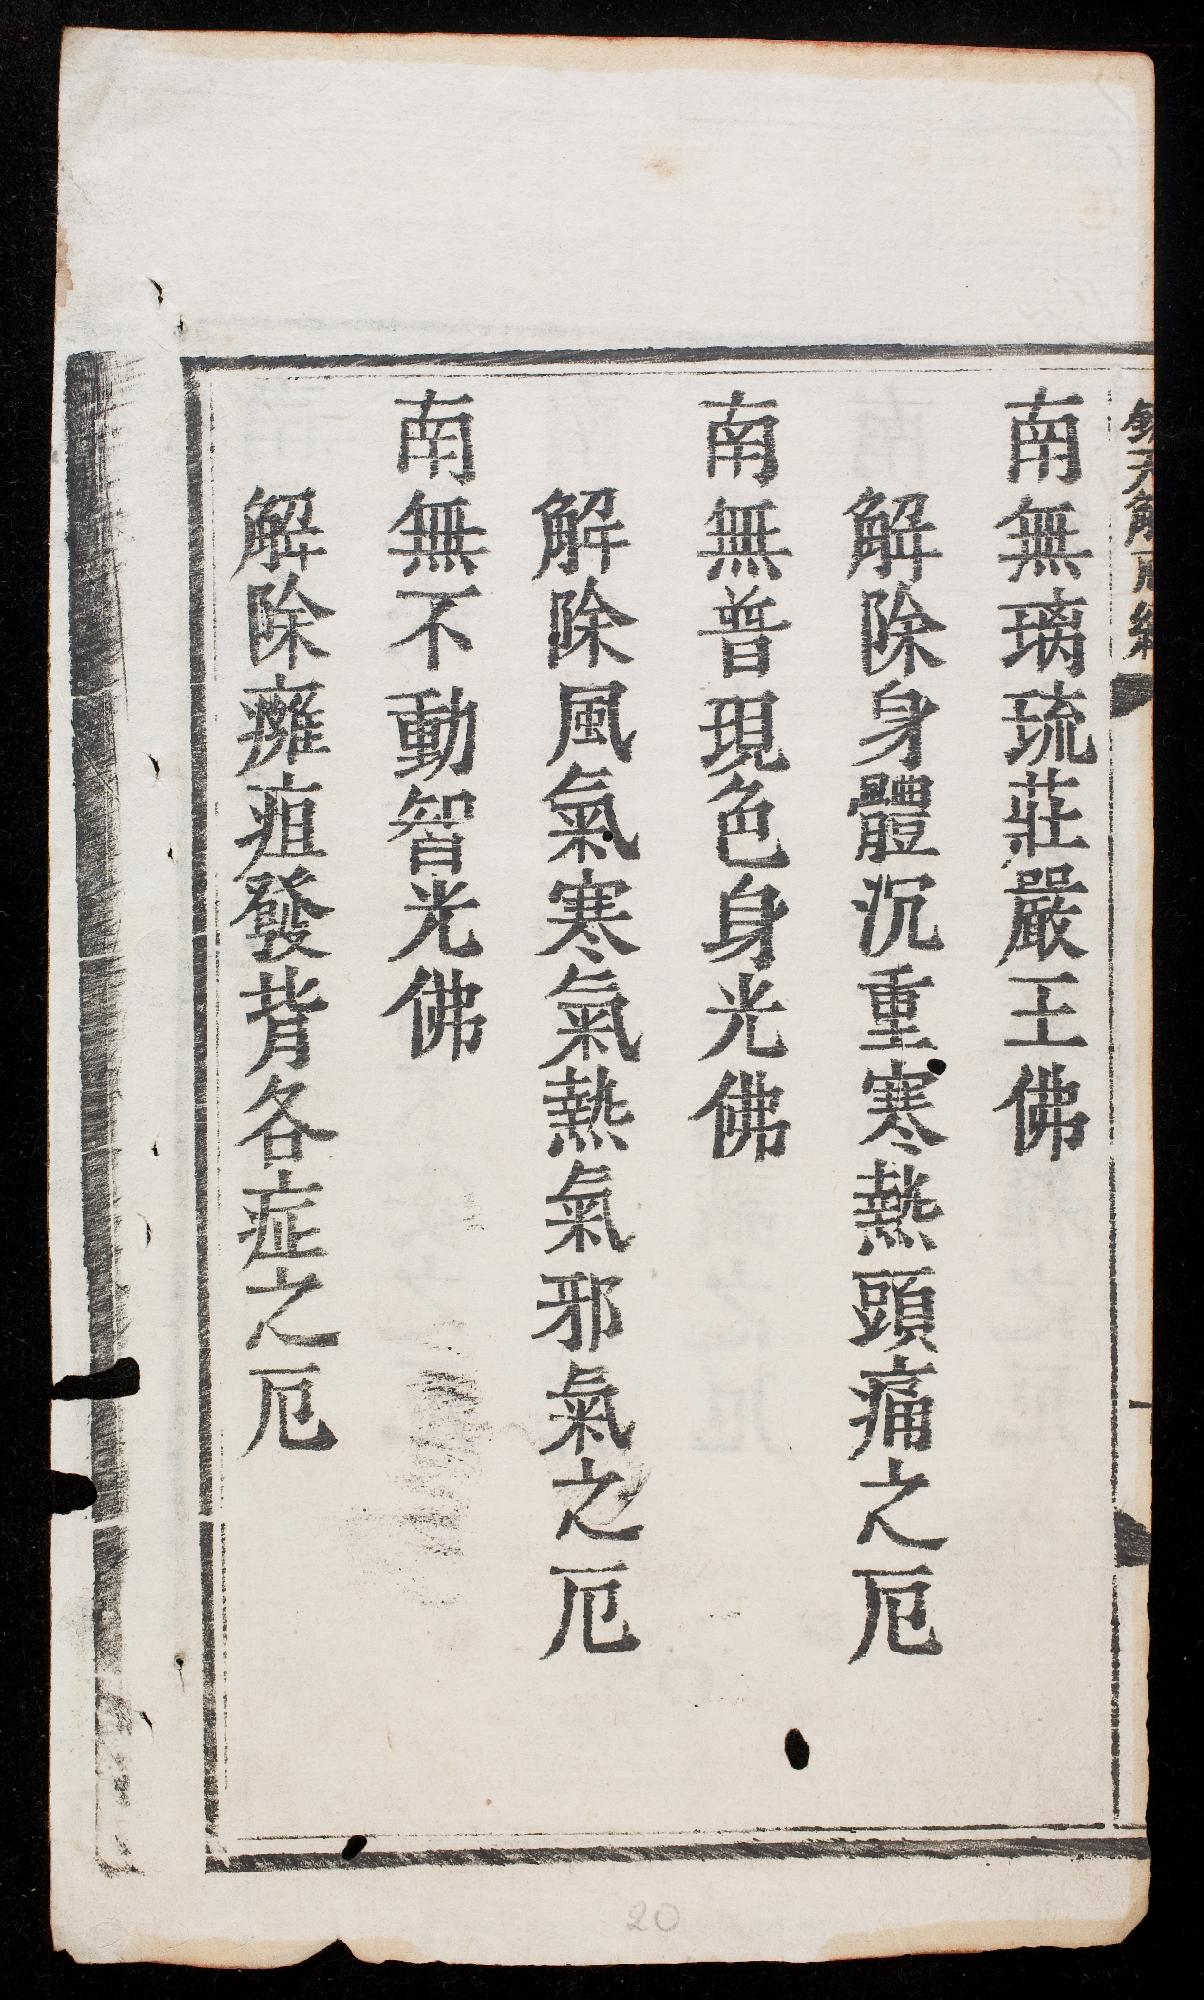 南無璃琉莊嚴王佛
解除身體沉重寒熱頭痛之厄
南無普現色身光佛
解除風氣寒氣熱氣邪氣之厄
南無不動智光佛
解除癰疽發背各症之厄
20